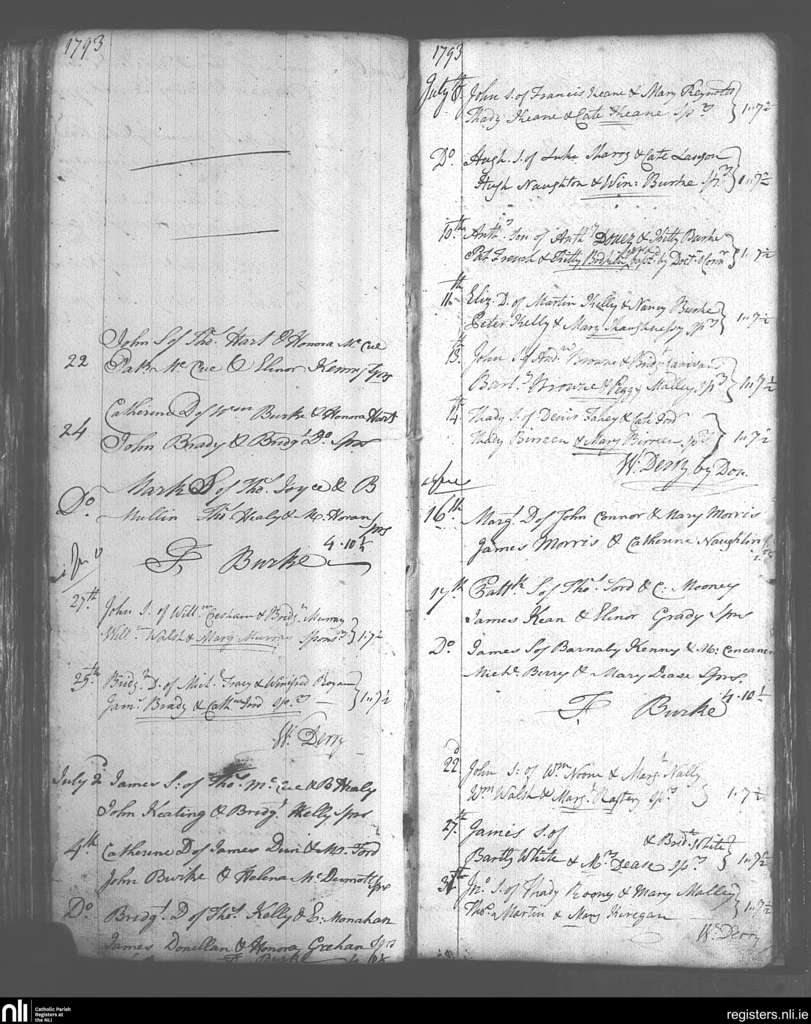 1793
John S of Thos. Hart & Honora Mc Cue
22 Patk. Mc Cue & Elinor Kenny Sprs
Catherine D of Wm Burke & Honora Hart
24 John Brady & Bridgt. Do. Sprs
Mark S of Thos. Joyce & B
Do. Mullin Thos. Healy & M. Horan
Sprs
4.10½
F Burke
27th John S. of Willm. & Bridgt. Murray
Willm. Walsh & Margt. Murray Sponsrs } 1.7½
25th Bridgt. D. of Michl. Tracy & Winifred Rogan
Jams. Brady & Cathne Ford Sprs } 1.7½
W. Derry
July 2d James S. of Thos. Mc. Cue & B Healy
John Keating & Bridgt. Kelly Sprs
4th Catherine D of James Dun & M. Ford
John Burke & Helena Mc Dermott Sprs
Do Bridgt. D of Thos. Kelly & E. Monahan
James Donellan & Honora Grehan Sprs
F Burke
1793
July 8th John S. of Francis Keane & Mary Reynolds
Thady Keane & Cate Keane Sprs } 1..7½
Do. Hugh S. of Luke Tharry & Cate Lawson
Hugh Naughton & Win: Burke Sprs } 1..7½
10th. Anthy. Son of Anthy. & Kitty Burke
Pat French & Kitty Bodkin by Doctr. } 1..7½
11th Eliz. D. of Martin Kelly & Nancy Burke
Peter Kelly & Mary Shaughnessy Sprs } 1..7½
13. John S. of Andw. Browne & Bridgt.
Bartw. Browne & Peggy Malley Sprs } 1..7½
14th Thady S. of Denis Fahey & Cate Ford
Thady Birreen & Mary Birreen Sprs } 1..7½
W. Derry by Don.
16th. Margt. D of John Connor & Mary Morris
James Morris & Catherine Naughton
17th Pattk. S of Thos. Ford & C. Mooney
James Kean & Elinor Grady Sprs
Do. James S of Barnaby Kenny & M. Concanen
Michl. Berry & Mary Dease Sprs.
4.10½
F Burke
22d John S. of Wm. Noone & Margt. Nally
Wm Walsh & Margt. Raftery Sprs } 1.7½
27th. James S. of & Bridt. White
Bartly White & Ms. Dease Sprs } 1..7½
31th Jno. S. of Thady Rooney & Mary Malley
Thos. Martin & Mary Finegan } 1..7½
W. Derry
nli Catholic Parish
Registers at
the NLI
registers.nli.ie